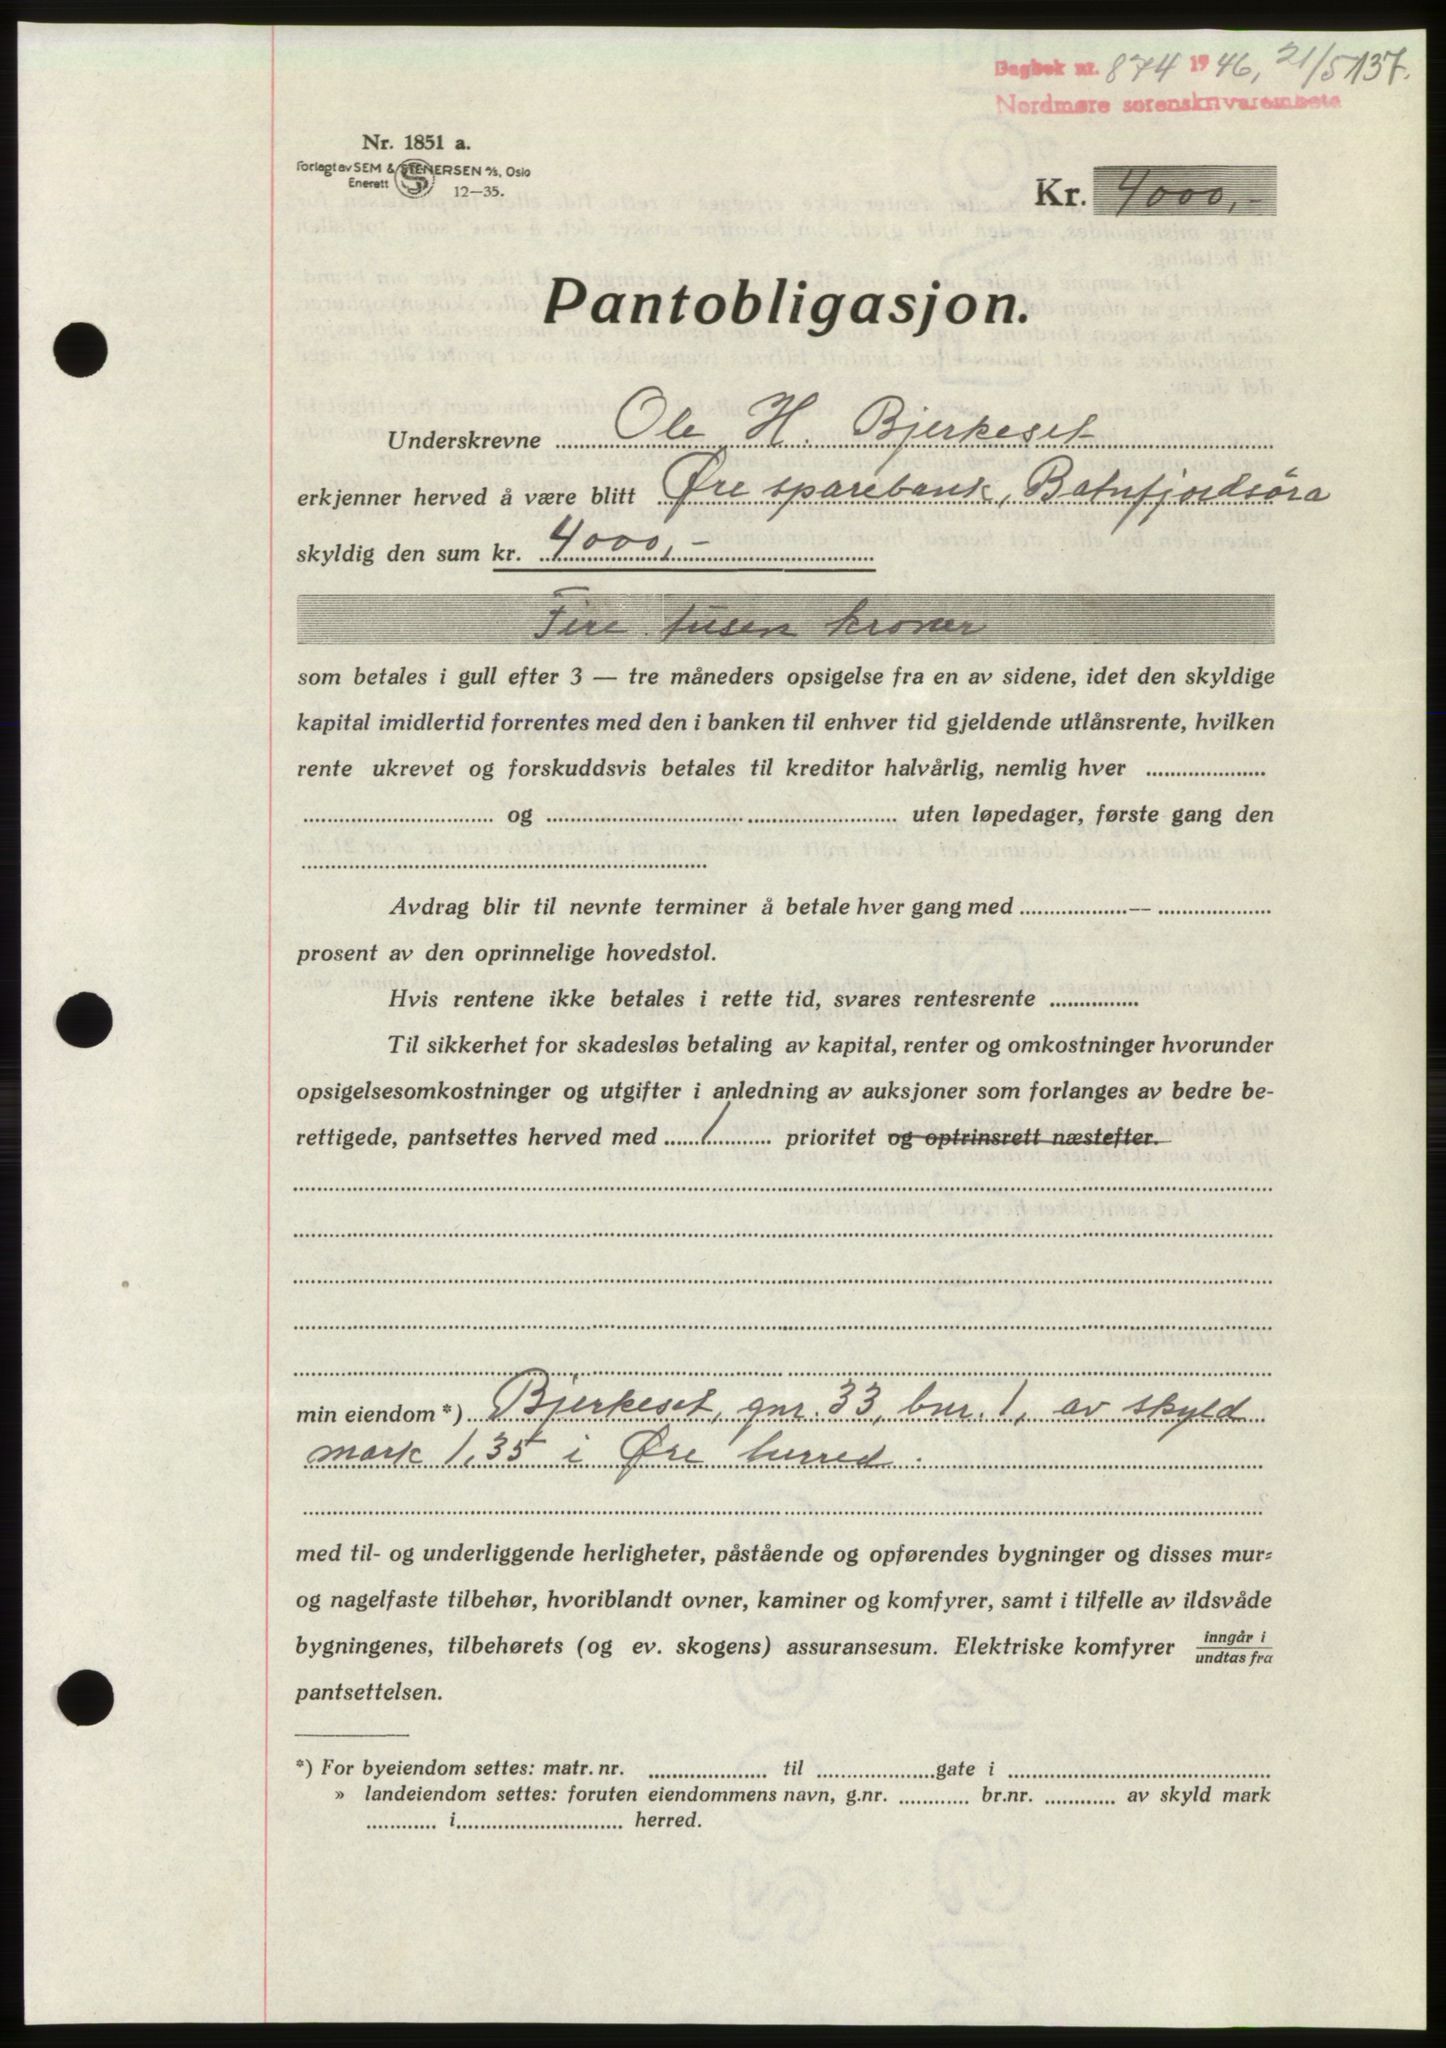 Dagbok nr. 874 1946, 21/5 137.
Nordmøre sorenskriverembete
Nr. 1851 a.
Forlagt av SEM & STENERSEN A/S, Oslo
Enerett
12—35.
Kr. 4000,-
Pantobligasjon.
Underskrevne Ole H. Bjerkeset
erkjenner herved å være blitt Øre sparebank, Batnfjordsöra
skyldig den sum kr. 4000,-
Fire tusen kroner
som betales i gull efter 3 — tre måneders opsigelse fra en av sidene, idet den skyldige
kapital imidlertid forrentes med den i banken til enhver tid gjeldende utlånsrente, hvilken
rente ukrevet og forskuddsvis betales til kreditor halvårlig, nemlig hver ....................
................................ og ................................ uten løpedager, første gang den
................................
Avdrag blir til nevnte terminer å betale hver gang med ..................—..................
prosent av den oprinnelige hovedstol.
Hvis rentene ikke betales i rette tid, svares rentesrente ...............
Til sikkerhet for skadesløs betaling av kapital, renter og omkostninger hvorunder
opsigelsesomkostninger og utgifter i anledning av auksjoner som forlanges av bedre be-
rettigede, pantsettes herved med 1 prioritet og optrinsrett næstefter.
min eiendom *) Bjerkeset, gnr. 33, bnr. 1, av skyld
mark 1,35 i Øre herred.
med til- og underliggende herligheter, påstående og opførendes bygninger og disses mur-
og nagelfaste tilbehør, hvoriblandt ovner, kaminer og komfyrer, samt i tilfelle av ildsvåde
bygningenes, tilbehørets (og ev. skogens) assuransesum. Elektriske komfyrer inngår i
undtas fra
pantsettelsen.
*) For byeiendom settes: matr. nr. .................... til ....................gate i ........................................
» landeiendom settes: foruten eiendommens navn, g.nr. ............ br.nr. ............ av skyld mark
............ i............................ herred.